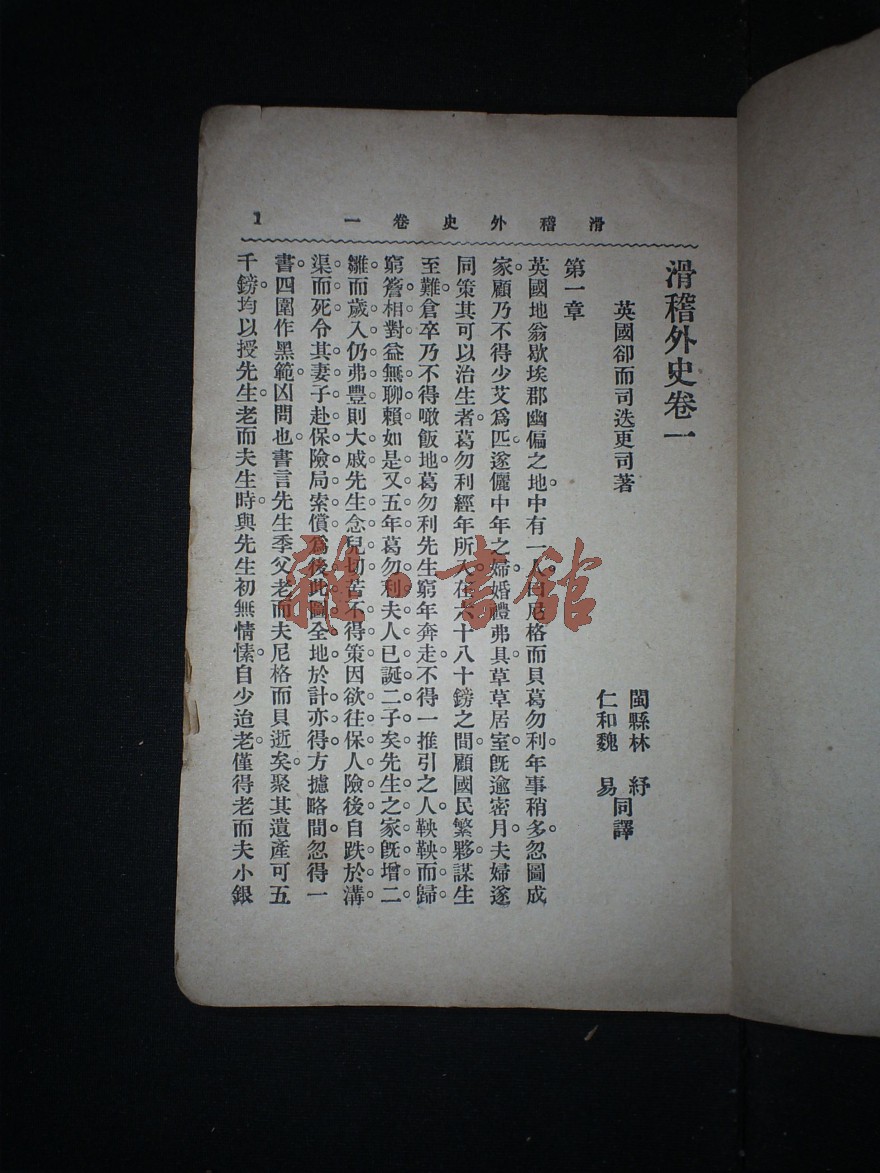 滑稽外史卷一 1
滑稽外史卷一
英國卻而司迭更司著
閩縣林紓
仁和魏易同譯
第一章
英國地翁歇埃郡幽偏之地。中有一人。曰尼格而貝葛勿利。年事稍多。忽圖成
家。顧乃不得少艾爲匹。遂儷中年之婦。婚禮弗具。草草居室。旣逾密月。夫婦遂
同策其可以治生者。葛勿利經年所入。在六十八十鎊之間。顧國民繁夥。謀生
至難。倉卒乃不得噉飯地。葛勿利先生窮年奔走。不得一推引之人。鞅鞅而歸。
窮簷相對。益無聊賴。如是又五年。葛勿利夫人已誕二子矣。先生之家旣增二
雛。而歲入仍弗豐。則大戚。先生念兒切苦。不得策。因欲往保人險。後自跌於溝
渠而死。令其妻子赴保險局索償。爲後此圖全地。於計亦得。方攄略間。忽得一
書。四圍作黑範。凶問也。書言先生季父老而夫尼格而貝逝矣。聚其遺產可五
千鎊。均以授先生。老而夫生時。與先生初無情愫。自少迨老。僅得老而夫小銀
雜·書館